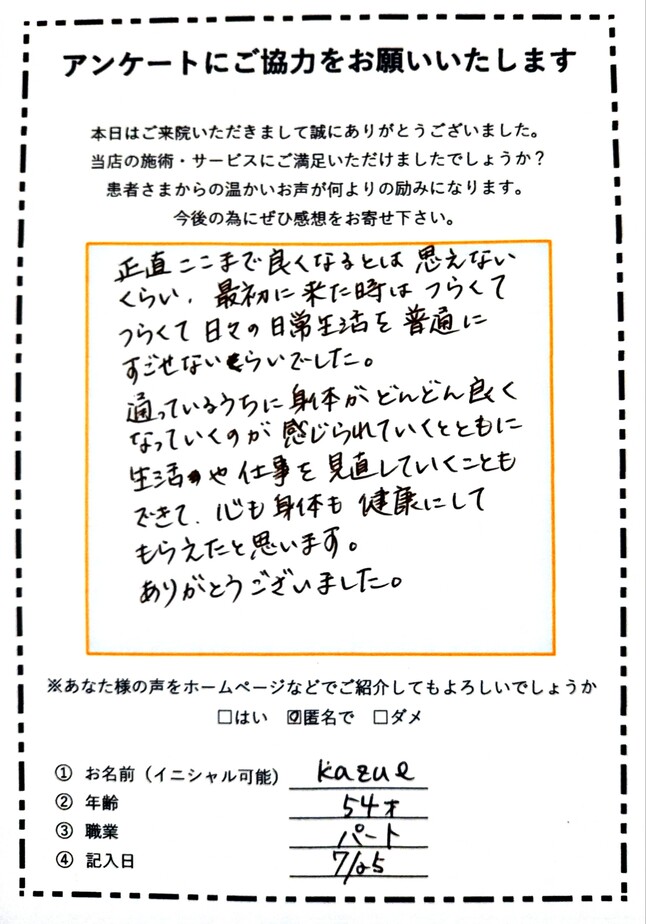 アンケートにご協力をお願いいたします
本日はご来院いただきまして誠にありがとうございました。
当店の施術・サービスにご満足いただけましたでしょうか？
患者さまからの温かいお声が何よりの励みになります。
今後の為にぜひ感想をお寄せ下さい。
正直ここまで良くなるとは思えない
くらい、最初に来た時はつらくて
つらくて日々の日常生活を普通に
すごせないくらいでした。
通っているうちに身体がどんどん良く
なっていくのが感じられていくとともに
生活や仕事を見直していくことも
できて、心も身体も健康にして
もらえたと思います。
ありがとうございました。
※あなた様の声をホームページなどでご紹介してもよろしいでしょうか
□はい ☑匿名で □ダメ
① お名前（イニシャル可能） kazue
② 年齢 54才
③ 職業 パート
④ 記入日 7/25